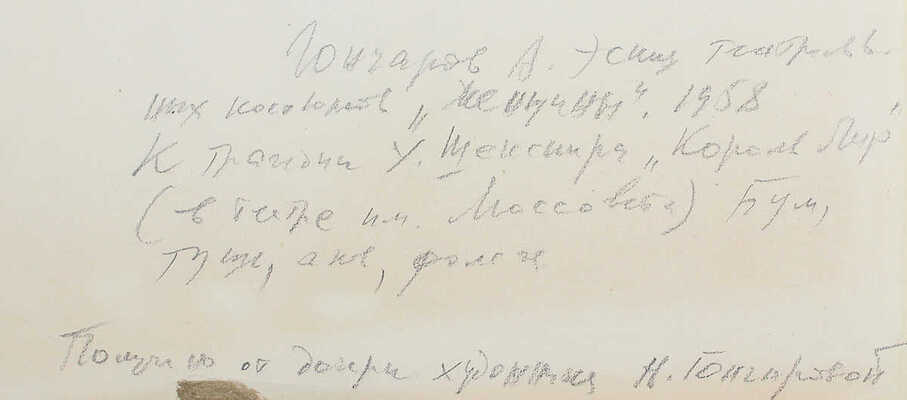 Гончаров А. Эскиз театраль-
ных костюмов „Женщины“. 1958
К трагедии У. Шекспира „Король Лир“
(в театре им. Моссовета) Бум,
туш, акв, фольга
Получено от дочери художника Н. Гончаровой